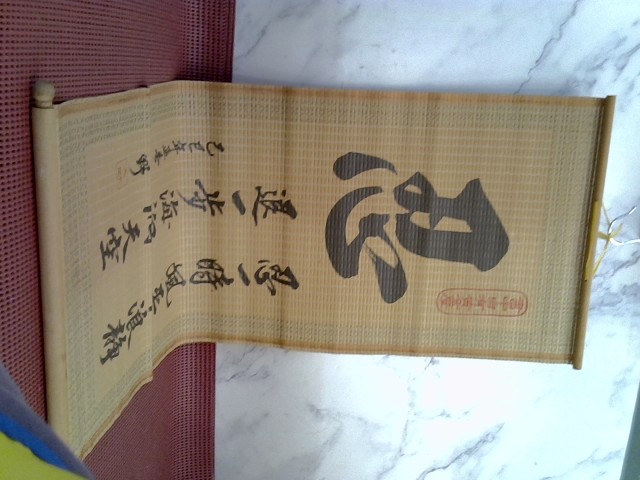 忍
忍一時風平浪靜
退一步海闊天空
己巳年